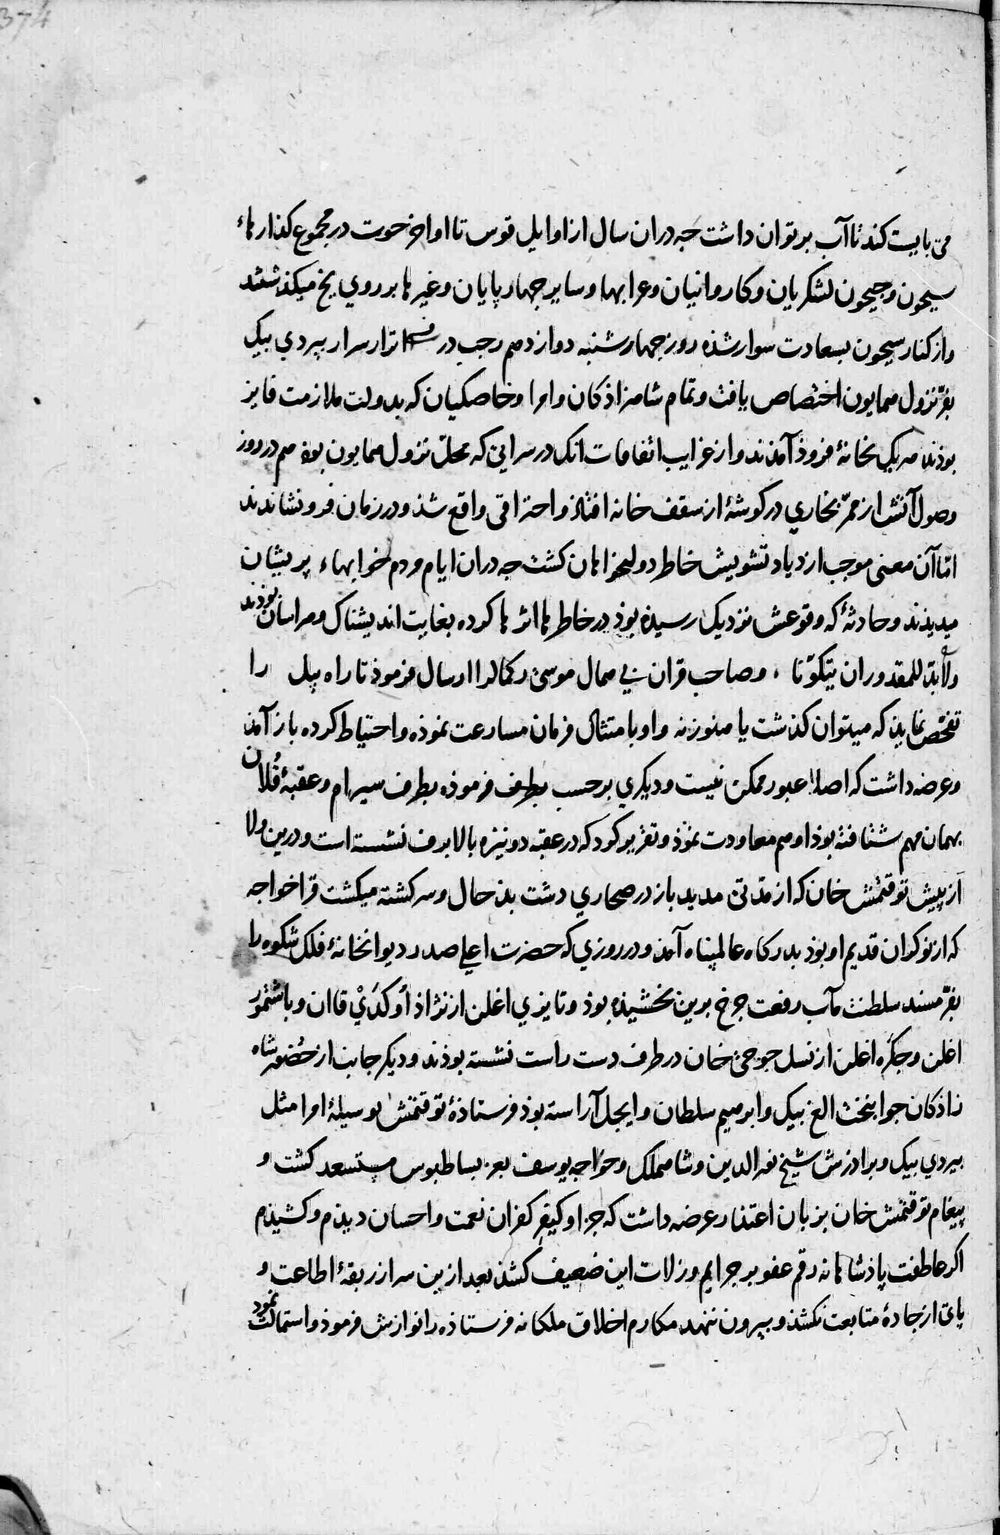 374
می بایست کند تا آب بر توان داشت چه دران سال از اوایل قوس تا اواخر حوت در مجموع کذارهاء
سیحون و جیحون لشکریان و کاروانیان و عرابها و سایر جهار پایان و غیرها بر روی یخ میکذشتند
و از کنار سیحون بسعادت سوار شذه روز جهارشنبه دوازدهم رجب در اترار سرای بیردی بیک
بفرّ نزول همایون اختصاص یافت و تمام شاهزاذکان و امرا و خاصکیان که بدولت ملازمت فایز
بوذند هر یک بخانهٔ فروذ آمذند و از غرایب اتفاقات انک در سرایی که محلّ نزول همایون بوذ هم در روز
وصول آتش از ممرّ بخاری در کوشهٔ از سقف خانه افتاذ و احتراقی واقع شذ و در زمان فرو نشاندند
امّا آن معنی موجب ازدیاد تشویش خاطر دولتخواهان کشت جه دران ایام مردم خوابهاء پریشان
میدیذند و حادثهٔ که وقوعش نزدیک رسیذه بوذ در خاطرها اثرها کرده بغایت اندیشناک و هراسان بوذند
ولابدّ للمقدور ان یتکوّنا ، و صاحب قران بی همال موسی رکمال را ارسال فرموذ تا راه پیل را
تفحّص نمایذ که میتوان کذشت یا هنوز نه و او بامتثال فرمان مسارعت نموذه و احتیاط کرده باز آمذ
و عرضه داشت که اصلا عبور ممکن نیست و دیکری بر حسب فرموذه بطرف سیرام و عقبهٔ قلان
بهمان مهم شتافته بوذ او هم معاودت نموذ و تقریر کرد که در عقبه دو نیزه بالا برف نشسته است و درین ولا
از پیش توقتمش خان که از مدّتی مدید باز در صحاری دشت بذ حال و سرکشته میکشت قرا خواجه
که از نوکران قدیم او بوذ بدرکاه عالمپناه آمذ و در روزی که حضرت اعلی صدر دیوانخانهٔ فلک شکوه را
بفرّ مسند سلطنت مآب رفعت جرخ برین بخشیذه بوذ و تایزی اغلن از نژاذ اُوکدَیْ قاان و باشتمور
اغلن و جکره اغلن از نسل جوجی خان در طرف دست راست نشسته بوذند و دیکر جانب از حضور شاه
زاذکان جوانبخت الغ بیک و ابرهیم سلطان و ایجل آراسته بوذ فرستاذهٔ توقتمش بوسیلهٔ امرا مثل
بیردی بیک و براذرش شیخ نور الدین و شاهملک و خواجه یوسف بعزّ بساط بوس مستسعد کشت و
پیغام توقتمش خان بزبان اعتذار عرضه داشت که جزا و کیفر کفران نعمت و احسان دیذم و کشیذم
اکر عاطفت پاذشاهانه رقم عفو بر جرایم و زلات این ضعیف کشذ بعد ازین سر از ربقهٔ اطاعت و
پای از جادهٔ متابعت نکشذ و بیرون ننهد مکارم اخلاق ملکانه فرستاذه را نوازش فرموذ و استمالت نموذ